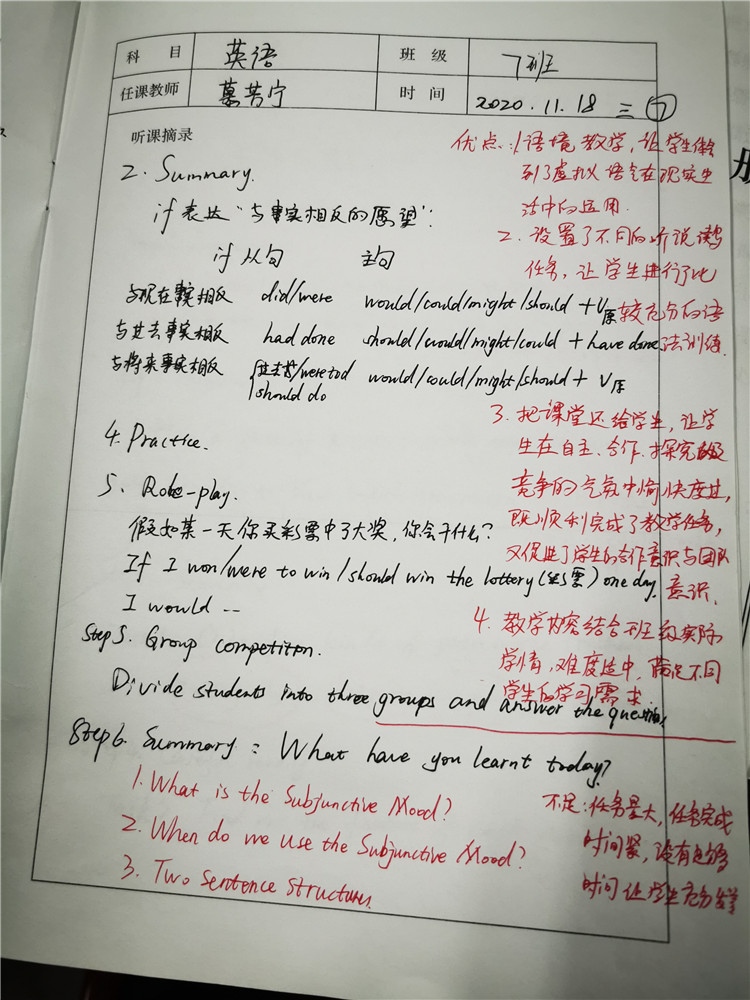 科 目 英语 班 级 7班
任课教师 慕芳宁 时 间 2020.11.18 三 ⑦
听课摘录
2. Summary.
if 表达“与事实相反的愿望”:
if 从句 主句
与现在事实相反 did/were would/could/might/should + V原
与过去事实相反 had done should/would/might/could + have done
与将来事实相反 过去式/were to do would/could/might/should + V原
should do
4. Practice.
5. Role-play.
假如某一天你买彩票中了大奖,你会干什么?
If I won/were to win/should win the lottery(彩票) one day.
I would --
Step 5. Group competition.
Divide students into three groups and answer the questions.
Step 6. Summary: What have you learnt today?
1. What is the Subjunctive Mood?
2. When do we use the Subjunctive Mood?
3. Two Sentence Structures.
优点:1语境教学,让学生体会
到了虚拟语气在现实生
活中的运用.
2. 设置了不同的听说读写
任务,让学生进行了比
较充分的语
法训练.
3. 把课堂还给学生,让学
生在自主、合作、探究
竞争的气氛中愉快度过,
既顺利完成了教学任务,
又促进了学生的合作意识与团队
意识.
4. 教学内容结合班级实际
学情,难度适中,满足不同
学生的学习需求.
不足:任务量大,任务完成
时间紧,没有足够
时间让学生充分